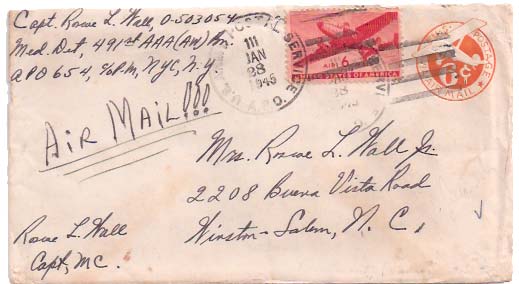 Capt. Roscoe L. Wall, O-503054
Med Det, 491st AAA (AW) Bn,
APO 654, % P.M., NYC, N.Y
U.S. POSTAL SERVICE
A.P.O.
111
JAN
28
1945
AIR 6¢
UNITED STATES OF AMERICA
POSTAGE
6¢
AIR MAIL
AIR MAIL!!!
Mrs. Roscoe L. Wall Jr.
2208 Buena Vista Road
Winston-Salem, N. C.,
Roscoe L. Wall
Capt, MC.